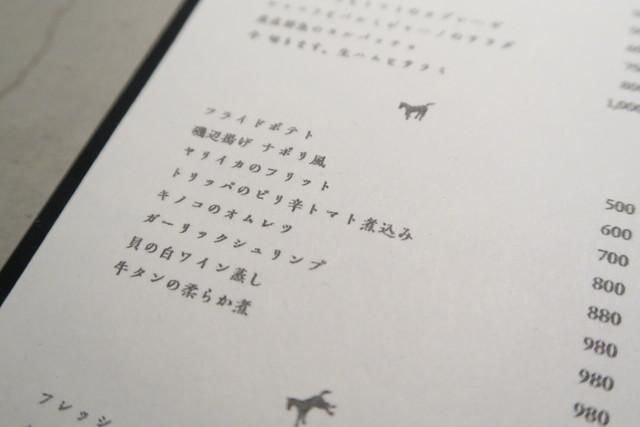 今切ります。生ハムとサラミ
1,000
フライドポテト 500
磯辺揚げ ナポリ風 600
ヤリイカのフリット 700
トリッパのピリ辛トマト煮込み 800
キノコのオムレツ 880
ガーリックシュリンプ 980
貝の白ワイン蒸し 980
牛タンの柔らか煮 980
フレッシ